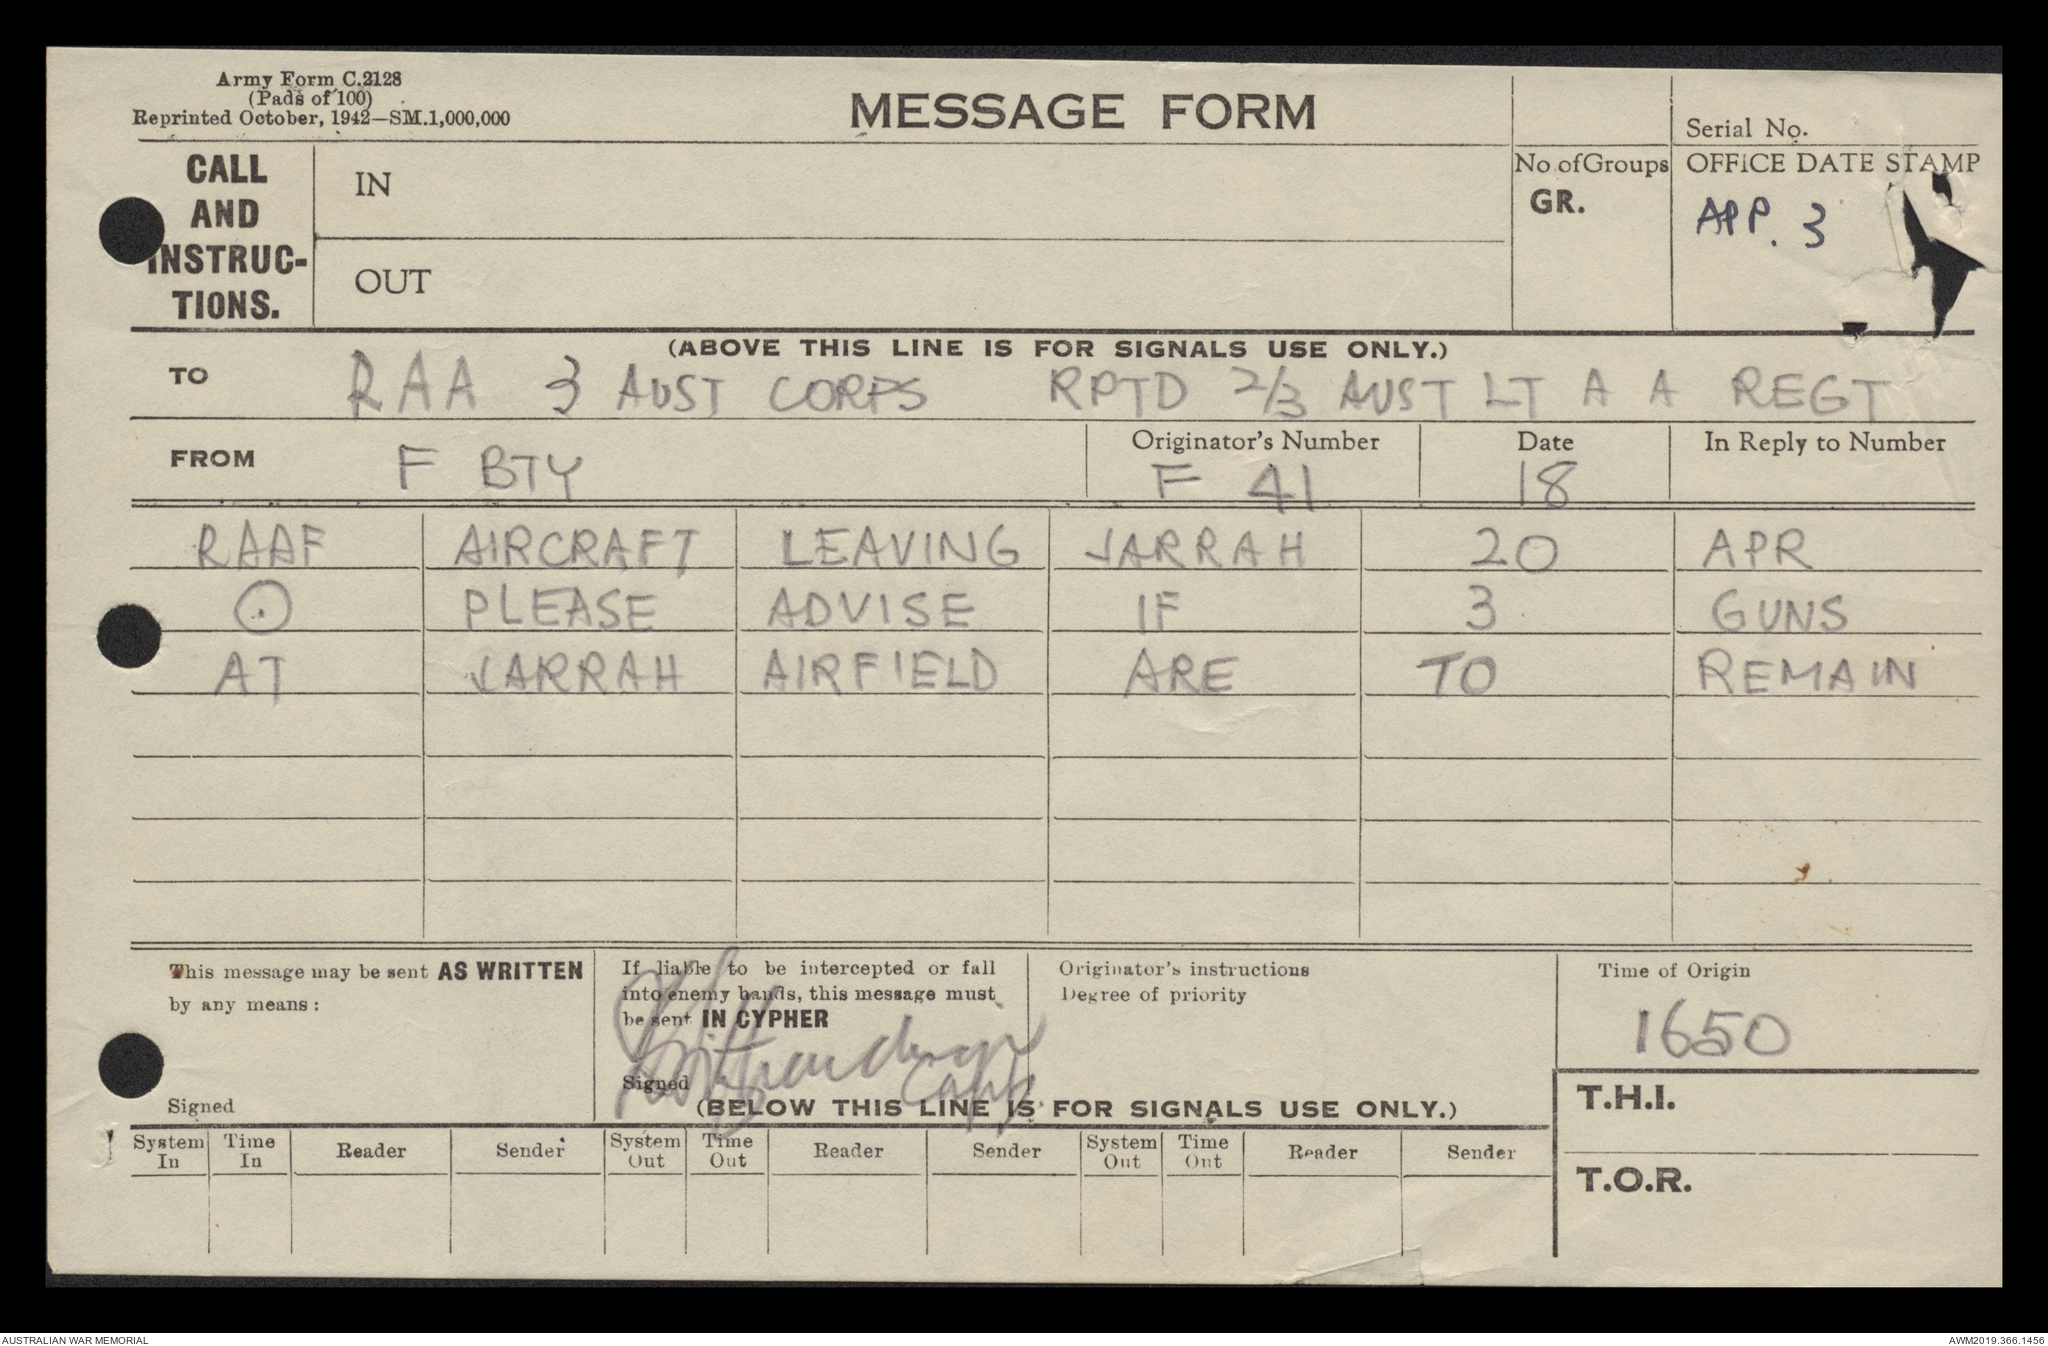 Army Form C.2128
(Pads of 100)
Reprinted October, 1942—SM.1,000,000
MESSAGE FORM
Serial No.
CALL AND INSTRUC-TIONS.
IN
No. of Groups
GR.
OFFICE DATE STAMP
APP. 3
OUT
(ABOVE THIS LINE IS FOR SIGNALS USE ONLY.)
TO RAA 3 AUST CORPS RPTD 2/3 AUST LT A A REGT
FROM F BTY
Originator's Number F 41
Date 18
In Reply to Number
RAAF AIRCRAFT LEAVING JARRAH 20 APR
⊙ PLEASE ADVISE IF 3 GUNS
AT JARRAH AIRFIELD ARE TO REMAIN
This message may be sent AS WRITTEN
by any means :
Signed
If liable to be intercepted or fall
into enemy hands, this message must
be sent IN CYPHER
Signed
Capt.
Originator's instructions
Degree of priority
Time of Origin
1650
(BELOW THIS LINE IS FOR SIGNALS USE ONLY.)
T.H.I.
T.O.R.
System In Time In Reader Sender System Out Time Out Reader Sender System Out Time Out Reader Sender
AUSTRALIAN WAR MEMORIAL
AWM2019.366.1456